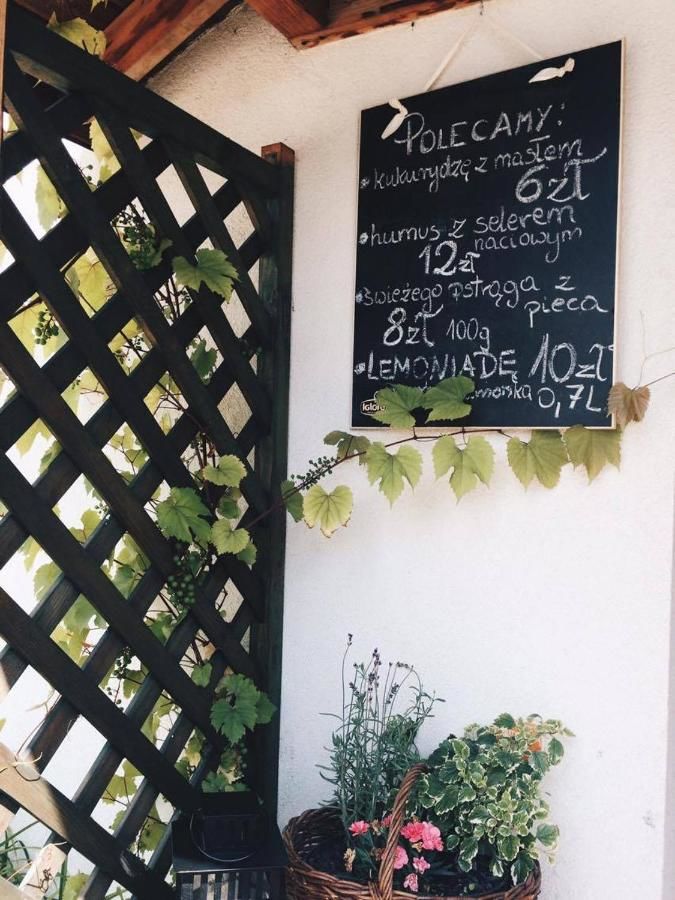 POLECAMY:
• kukurydzę z masłem
6zł
• humus z selerem
naciowym
12zł
• świeżego pstrąga z
pieca
8zł 100g
• LEMONIADĘ 10zł
0,7L
Iglotex